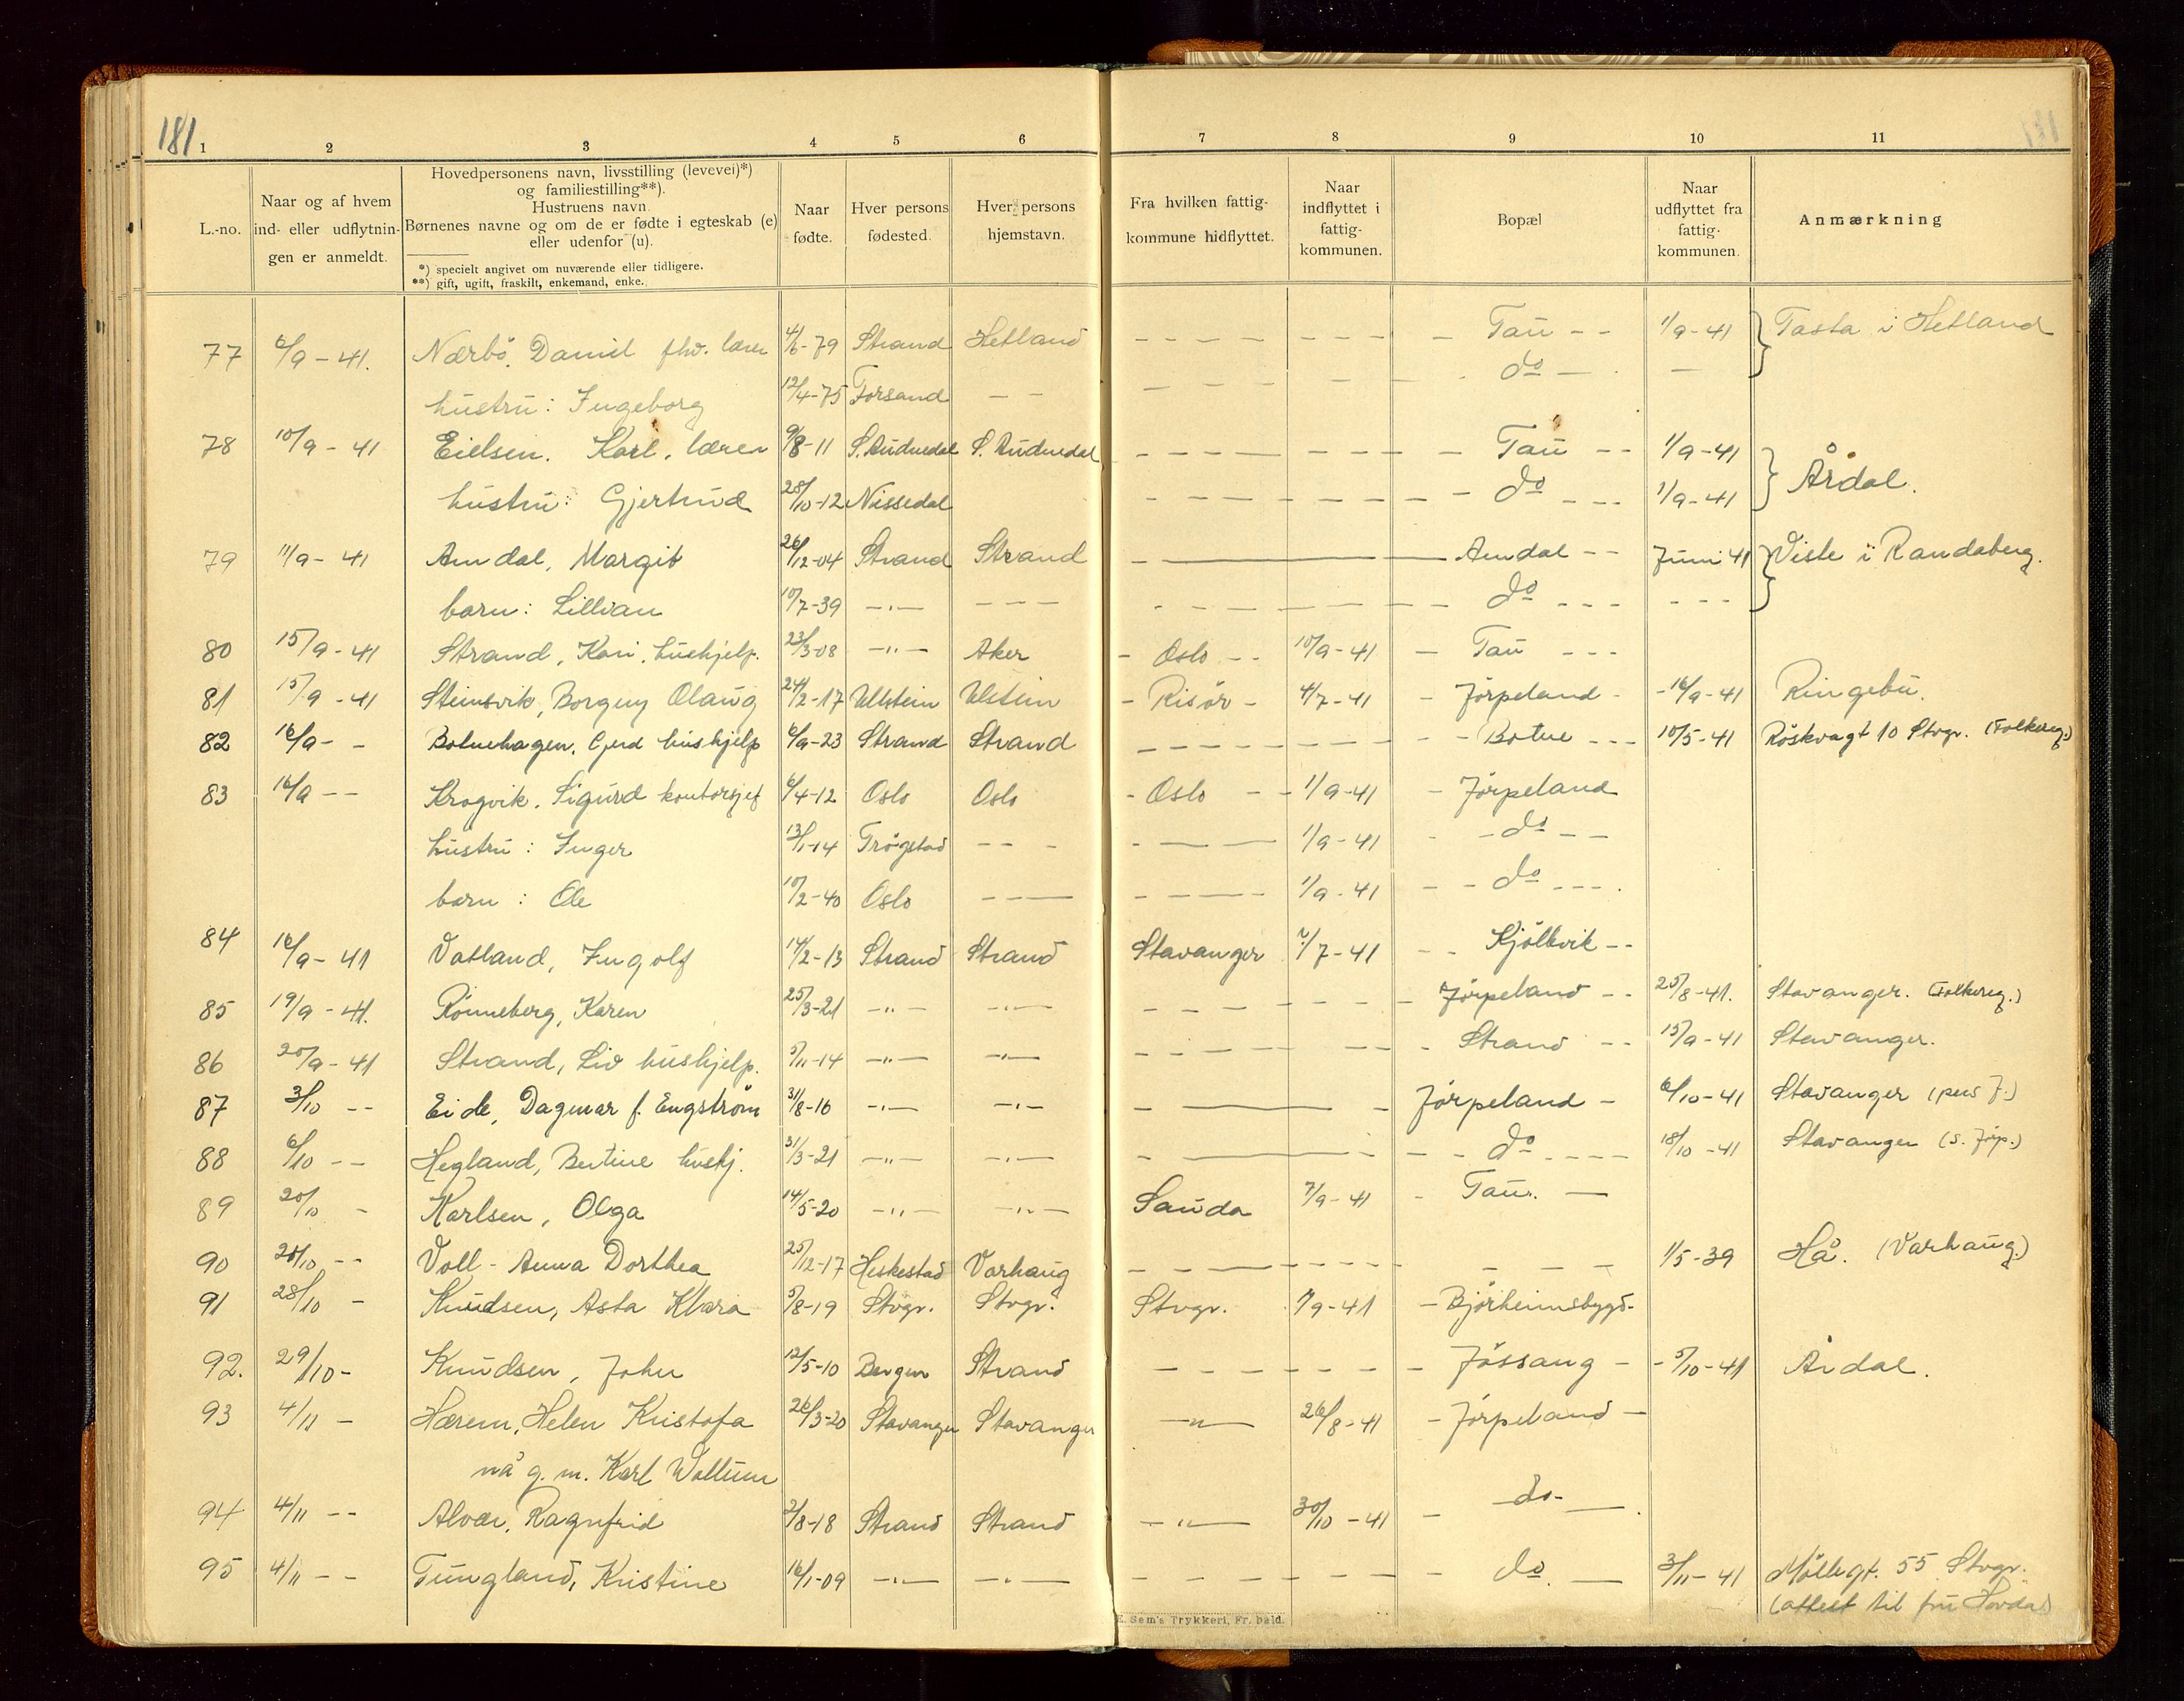 181
1 2 3 4 5 6 7 8 9 10 11
L.-no.
Naar og af hvem ind- eller udflytnin- gen er anmeldt.
Hovedpersonens navn, livsstilling (levevei)*)
og familiestilling**).
Hustruens navn.
Børnenes navne og om de er fødte i egteskab (e)
eller udenfor (u).
*) specielt angivet om nuværende eller tidligere.
**) gift, ugift, fraskilt, enkemand, enke.
Naar fødte.
Hver persons fødested.
Hver persons hjemstavn.
Fra hvilken fattig- kommune hidflyttet.
Naar indflyttet i fattig- kommunen.
Bopæl
Naar udflyttet fra fattig- kommunen.
Anmærkning
77 6/9 - 41. Nærbö, Daniel fhv. lærer 4/6-79 Strand Hetland - - - - Tau - - 1/9-41 } Tasta i Hetland
hustru: Ingeborg 12/4-75 Forsand - - - - - - do - -
78 10/9 - 41 Eielsen. Karl, lærer 9/8-11 S. Audnedal S. Audnedal - - - - Tau - - 1/9-41 } Årdal.
hustru: Gjertrud 28/10-12 Nissedal - - - - do - - - 1/9-41
79 11/9 - 41 Amdal, Margit 26/12-04 Strand Strand - — Amdal - - Juni 41 } Viste i Randaberg.
barn: Lillian 10/7-39 -"- - - - - - - - do - - - - - -
80 15/9 - 41 Strand, Kari, hushjelp. 23/3-08 -"- Aker - Oslo - - 10/9-41 - Tau - - -
81 15/9 - 41 Steinsvik, Borgny Olaug 24/2-17 Ullstein Ulstein - Risör - 4/7-41 - Jörpeland - - 16/9-41 Ringebu.
82 16/9 - - Botnehagen, Gerd hushjelp 6/9-23 Strand Strand - - - - Botne - - - 10/5-41 Röskvagt 10 Stvgr. (Folkereg.)
83 16/9 - - Krogvik, Sigurd kontorsjef 6/4-12 Oslo Oslo - Oslo - - 1/9-41 - Jörpeland
hustru: Inger 13/1-14 Trögstad - - - - — 1/9-41 - - do - -
barn: Ole 10/2-40 Oslo - - - - - - 1/9-41 - - do - - -
84 16/9 - 41 Vatland, Ingolf 14/2-13 Strand Strand Stavanger 1/7-41 - - Kjölkvik - -
85 19/9 - 41. Rönneberg, Karen 25/3-21 -"- -"- - - - - Jörpeland - - 25/8-41. Stavanger. (Folkereg.)
86 20/9 - 41 Strand, Liv hushjelp. 5/11-14 -"- -"- - - - - Strand - - 15/9-41 Stavanger.
87 3/10 - - Eide, Dagmar f. Engström 31/8-16 -"- -"- - — - Jörpeland - 6/10-41 Stavanger (pus J.)
88 6/10 - - Hegland, Bertine hushj. 31/3-21 -"- -"- - — - - do - - - - 18/10-41 Stavanger (s. Jörp.)
89 20/10 - Karlsen, Olga 14/5-20 -"- -"- Sauda 7/9-41 - Tau. -
90 20/10 - - Voll - Anna Dorthea 25/12-17 Heskestad Varhaug - - - - - - - 1/5-39 Hå. (Varhaug.)
91 28/10 - Knudsen, Asta Klara 5/8-19 Stvgr. Stvgr. Stvgr. 1/9-41 - Bjørheimsbygd-
92. 29/10 - Knudsen, John 12/5-10 Bergen Strand - - - - - Jössang - - 5/10-41 Årdal.
93 4/11 - Hærem, Helen Kristofa 26/3-20 Stavanger Stavanger -"- 26/8-41 - Jörpeland -
nå g. m. Karl Woltum
94 4/11 - - Alvær, Ragnfrid 2/8-18 Strand Strand -"- 30/10-41 - do -
95 4/11 - - Tungland, Kristine 16/1-09 -"- -"- - - - - - do. - 3/11-41 Möllegt. 55 Stvgr.
(attest til fru Hövda)
E. Sem's Trykkeri, Fr. hald.